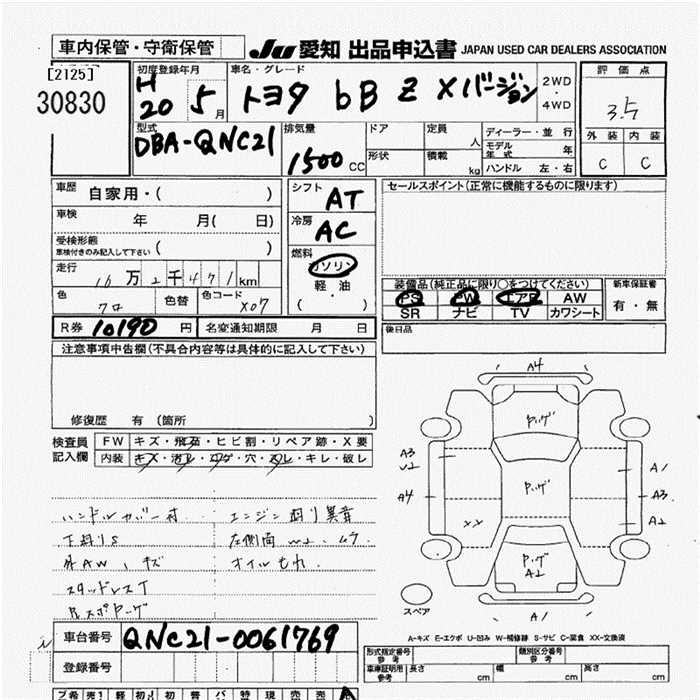 車内保管・守衛保管
JU 愛知 出品申込書 JAPAN USED CAR DEALERS ASSOCIATION
[2125]
30830
初度登録年月
H 20 5月
車名・グレード
トヨタ bB Z Xバージョン
2WD
・
4WD
評価点
3.5
外装 内装
C C
型式
DBA-QNC21
排気量
1500 CC
ドア 定員 人
形状 積載 kg
ディーラー・並行
モデル年式 年
ハンドル 左・右
車歴 自家用・( )
車検 年 月( 日)
受検形態
車検付きのみ記入して下さい ( )
走行 10万2千471km
色 クロ 色替 色コード X07
シフト AT
冷房 AC
燃料
ガソリン
軽油
・
( )
セールスポイント(正常に機能するものに限ります)
装備品(純正品に限り○をつけてください)
PS PW エアB AW
SR ナビ TV カワシート
新車保証書
有・無
後日品
R券 10190円 名変通知期限 月 日
注意事項申告欄(不具合内容等は具体的に記入して下さい)
修復歴 有 (箇所 )
検査員
記入欄
FW キズ・飛石・ヒビ割・リペア跡・X要
内装 キズ・汚レ・コゲ・穴・スレ・キレ・破レ
ハンドルカバー付 エンジン廻り異音
下廻りS 左側面 ムラ
外AW、キズ オイルもれ
スタッドレスT
A4
ハ゜ッゲ
A3
V2
A4
XX
A1
A3
A2
A2
A1
スペア
A-キズ E-エクボ U-凹み W-補修跡 S-サビ C-腐食 XX-交換済
車台番号 QNC21-0061769
登録番号
形式指定番号
参考
類別区分番号
参考
車庫証明用
参考
長さ cm 幅 cm 高さ cm